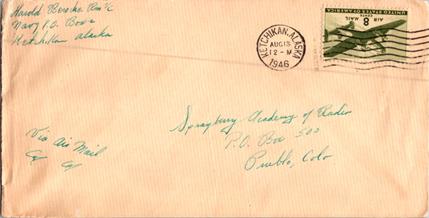 Harold
Navy P.O. Box
Ketchikan Alaska
KETCHIKAN, ALASKA
AUG 13
12-M
1946
UNITED STATES OF AMERICA
AIR MAIL
8
Via Air Mail
Spraybury Academy of Radio
P.O. Box 500
Pueblo, Colo